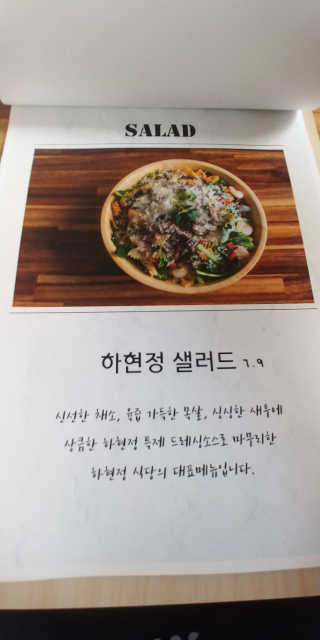 SALAD
하현정 샐러드 7.9
신선한 채소, 육즙 가득한 목살, 싱싱한 새우에
상큼한 하현정 특제 드레싱소스로 마무리한
하현정 식당의 대표메뉴입니다.